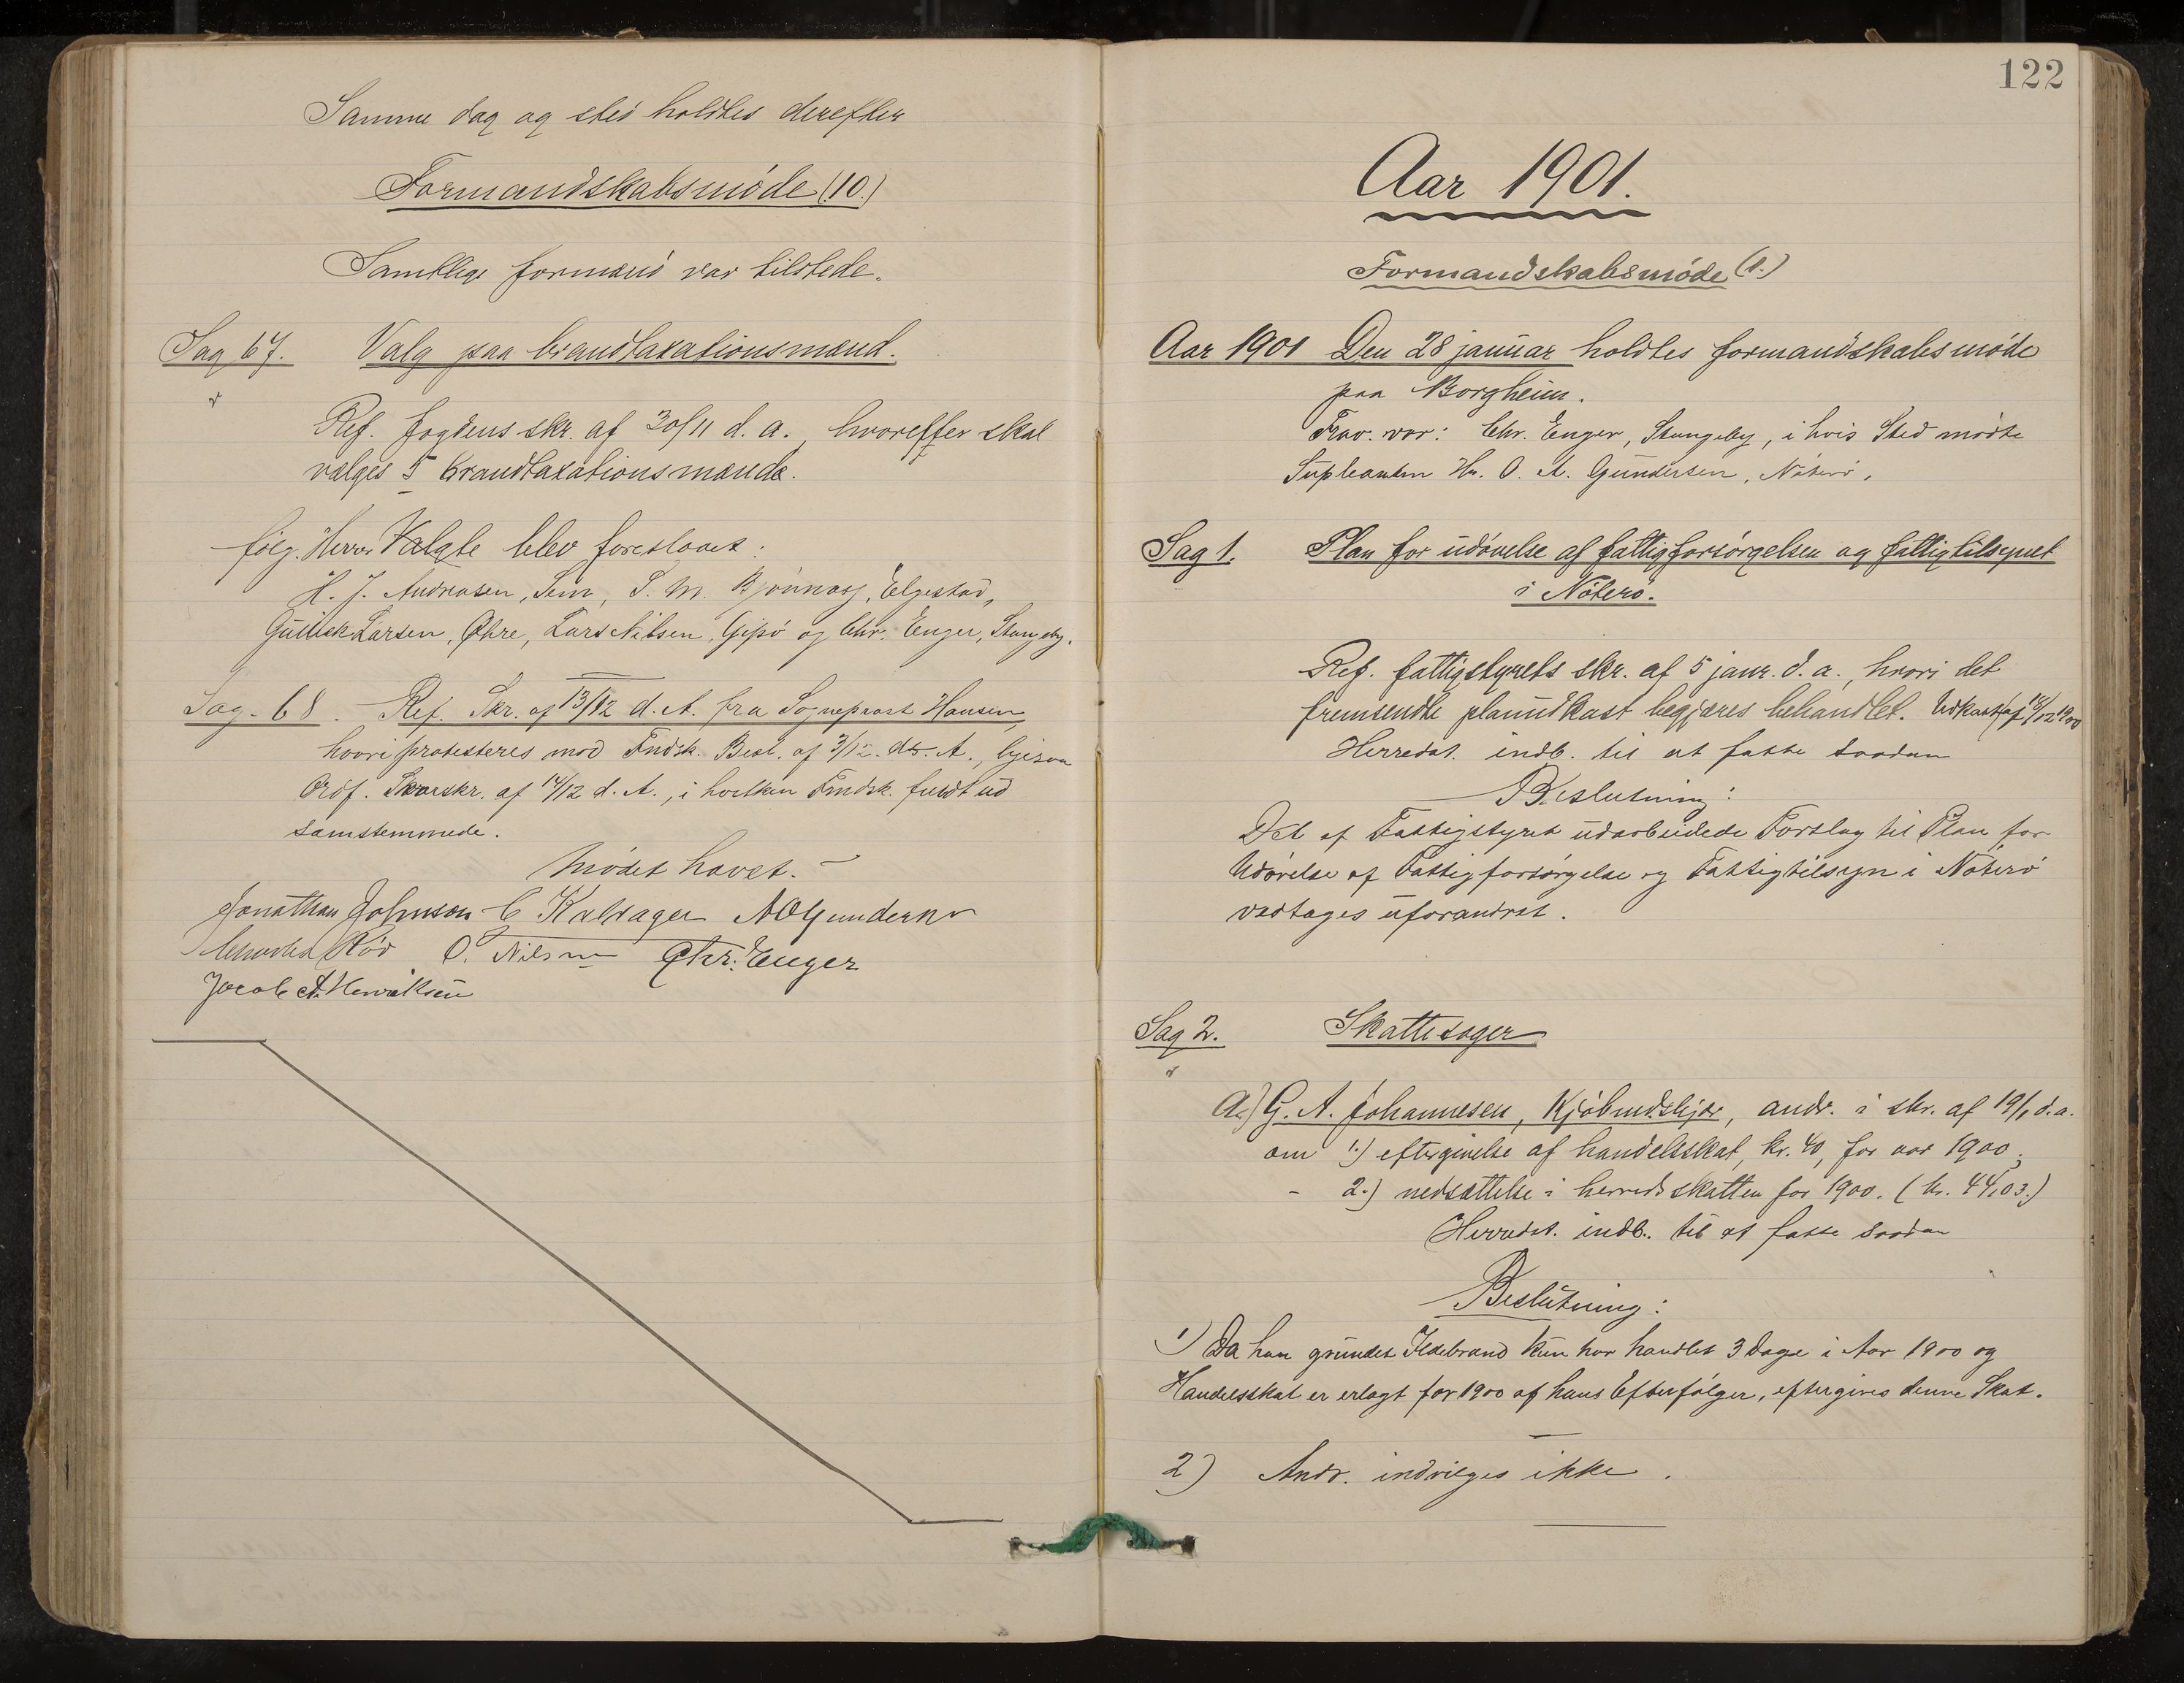 Samme dag og sted holdtes derefter
Formandskabsmöde (10.)
Samtlige formænd var tilstede.
Sag 67. Valg paa brandtaxationsmænd.
Ref. fogdens skr. af 30/11 d. a., hvorefter skal
vælges 5 brandtaxationsmænd.
følg. Herrer Valgte blev foreslaaet:
H. J. Andreasen, Sem, S. M. Bjönnæs, Elgestad,
Gullick Larsen, Ohre, Lars Nilsen, Gipö og Chr. Enger, Stangeby.
Sag. 68. Ref. Skr. af 13/12 d. A. fra Sogneprest Hansen,
hvori protesteres mod Fmdsk. Besl. af 3/12 d. A.,
Ordf. Skr. af 14/12 d. A., i hvilken Fmdsk. fuldt ud
samstemmede.
Mödet hævet.
Jonathan Johnson C Kaldager A O Gundersen
Röd O. Nilsen Chr. Enger
Jacob A. Henriksen
122
Aar 1901.
Formandskabsmöde (1.)
Aar 1901 Den 28 januar holdtes formandskabsmöde
paa Borgheim.
Frav. var: Chr. Enger, Stangeby, i hvis Sted mödte
Supleanten Hr. O. A. Gundersen, Nöterö.
Sag 1. Plan for udövelse af fattigforsörgelsen og fattigtilsynet
i Nöterö.
Ref. fattigstyrets skr. af 5 janr. d. a., hvori det
fremsendte planudkast begjæres behandlet. Udkast af 18/12 1900
Herredst. indb. til at fatte saadan
Beslutning:
Det af Fattigstyret udarbeidede Forslag til Plan for
Udövelse af Fattigforsörgelse og Fattigtilsyn i Nöterö
vedtages uforandret.
Sag 2. Skattesager
a.) G. A. Johannesen, Kjöbmdskjær, andr. i skr. af 19/1 d. a.
om 1.) eftergivelse af handelsskat, kr. 40, for aar 1900,
- 2.) nedsættelse i herredsskatten for 1900. (kr. 44,03.)
Herredst. indb. til at fatte saadan
Beslutning:
1) Da han grundet Ildebrand kun har handlet 3 Dage i Aar 1900 og
Handelsskat er erlagt for 1900 af hans Efterfölger, eftergives denne Skat.
2) Andr. indvilges ikke.